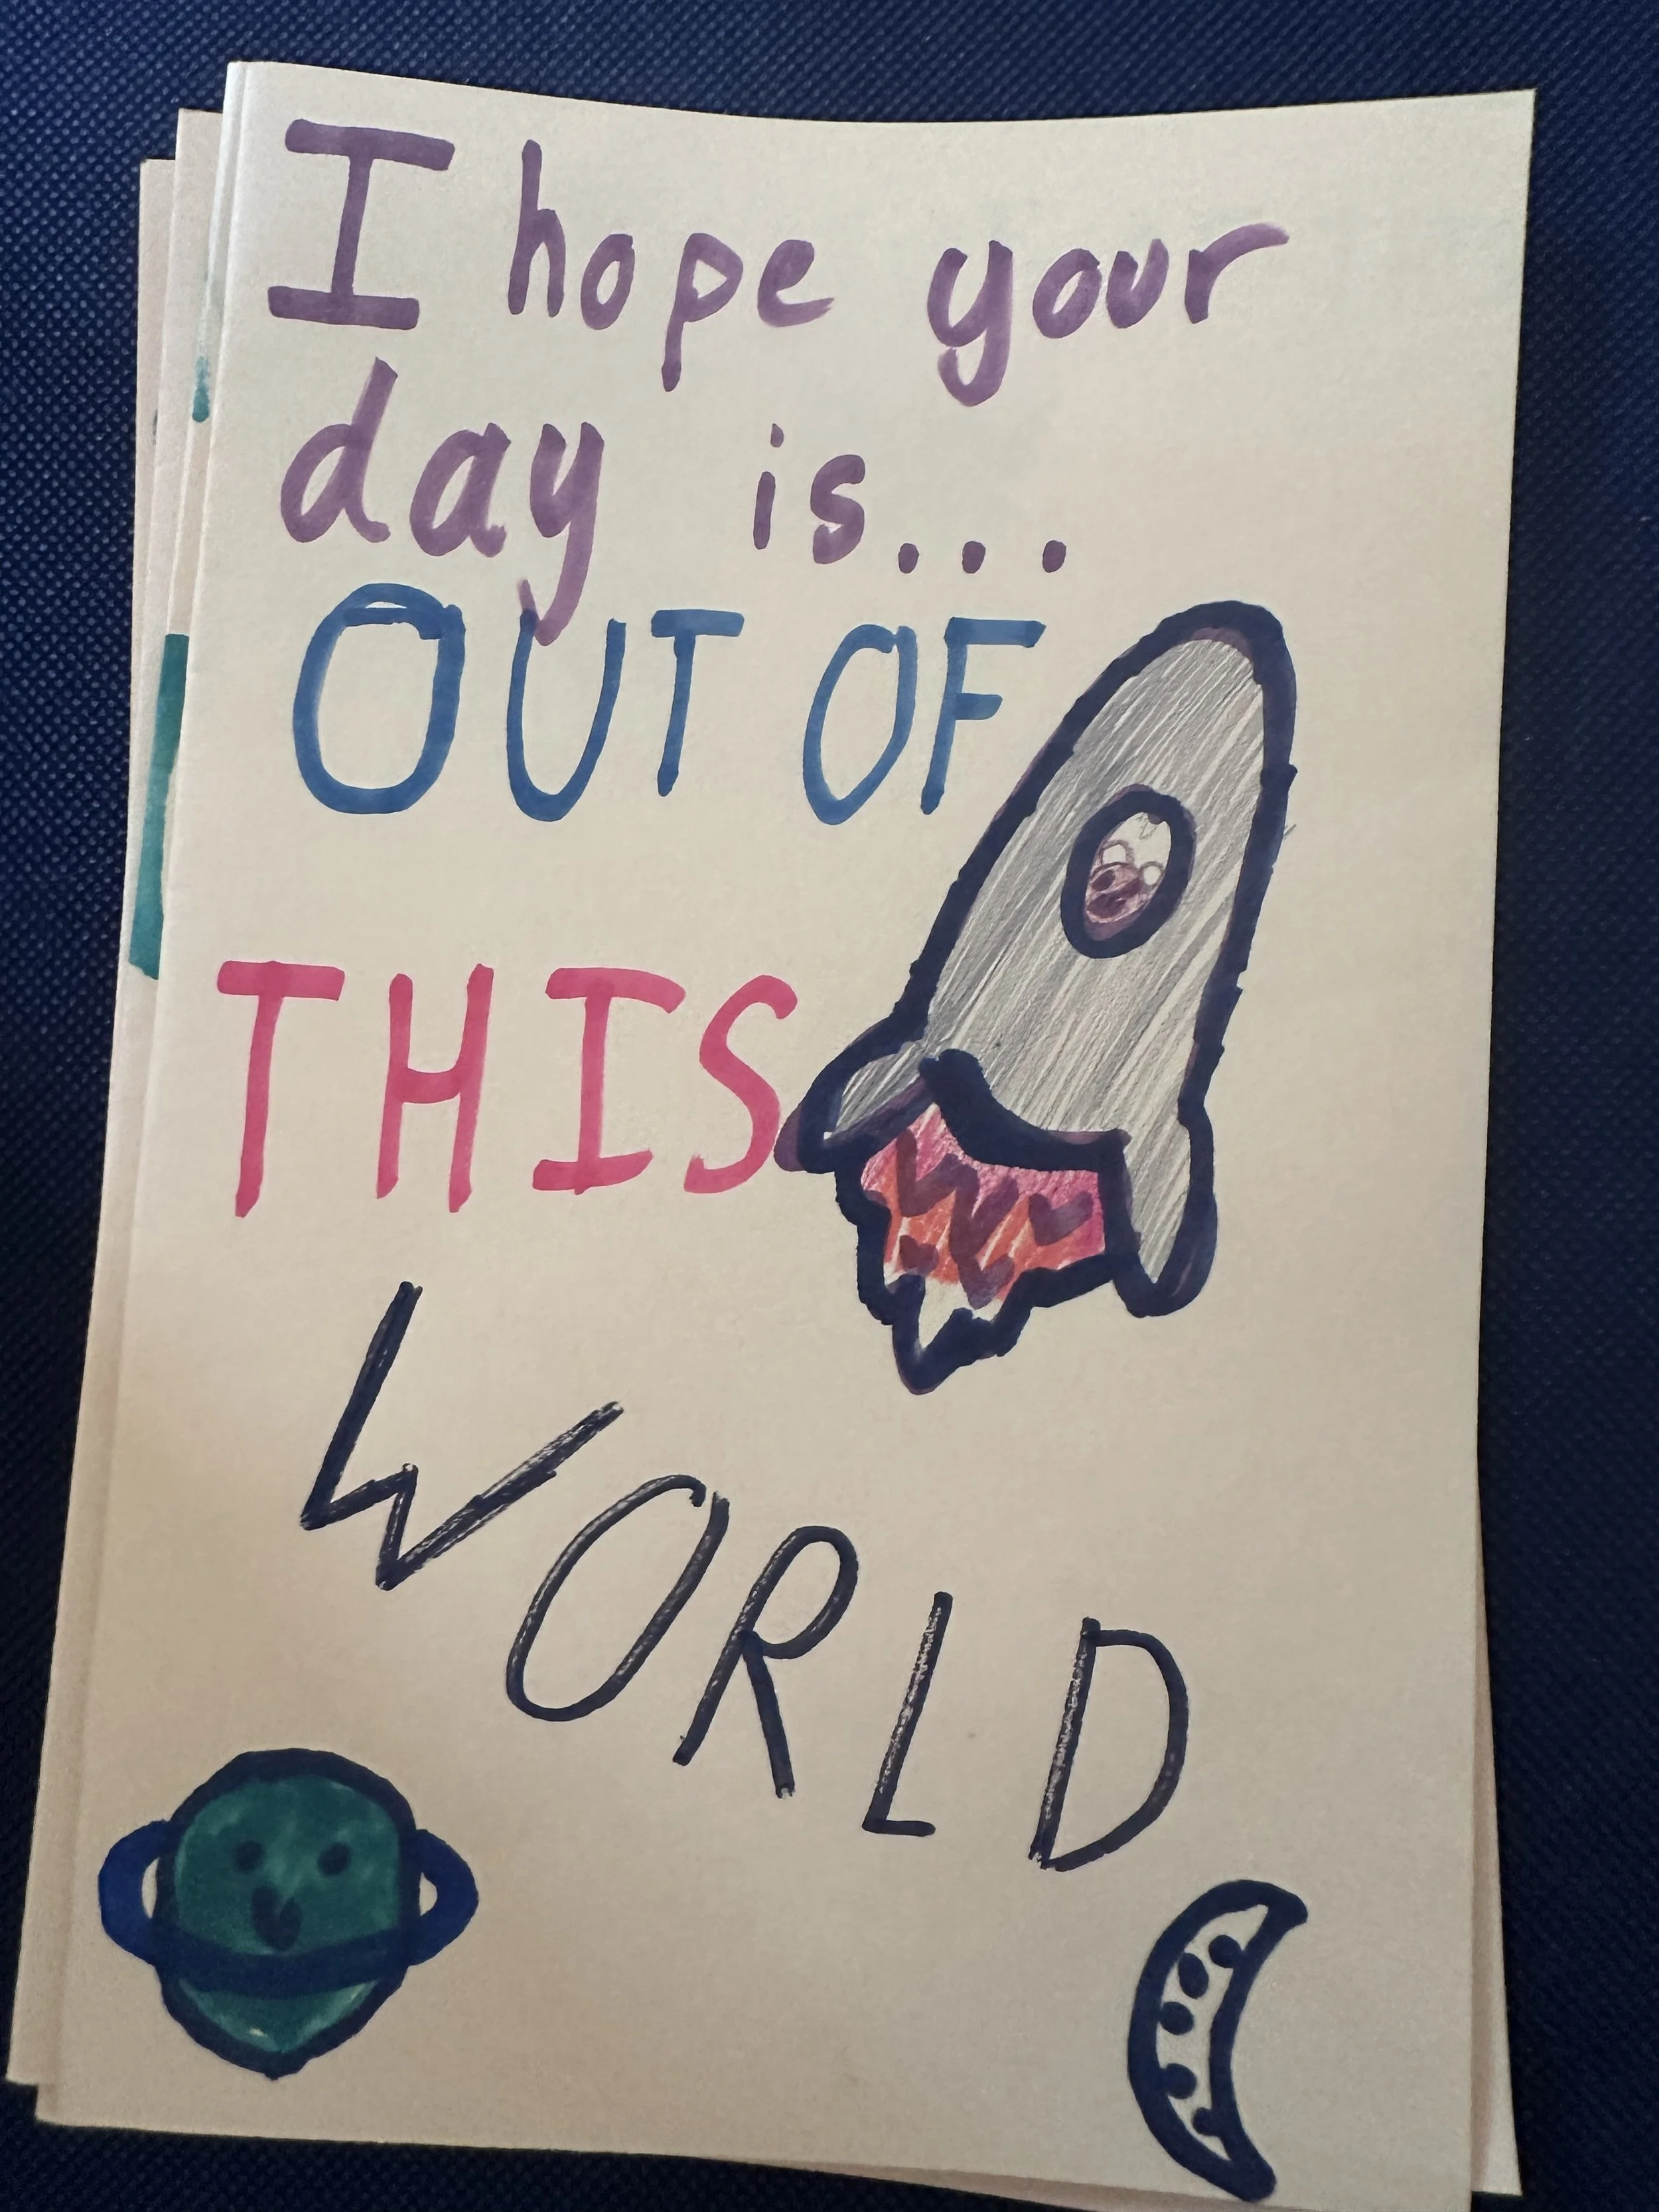 I hope your
day is...
OUT OF
THIS
WORLD